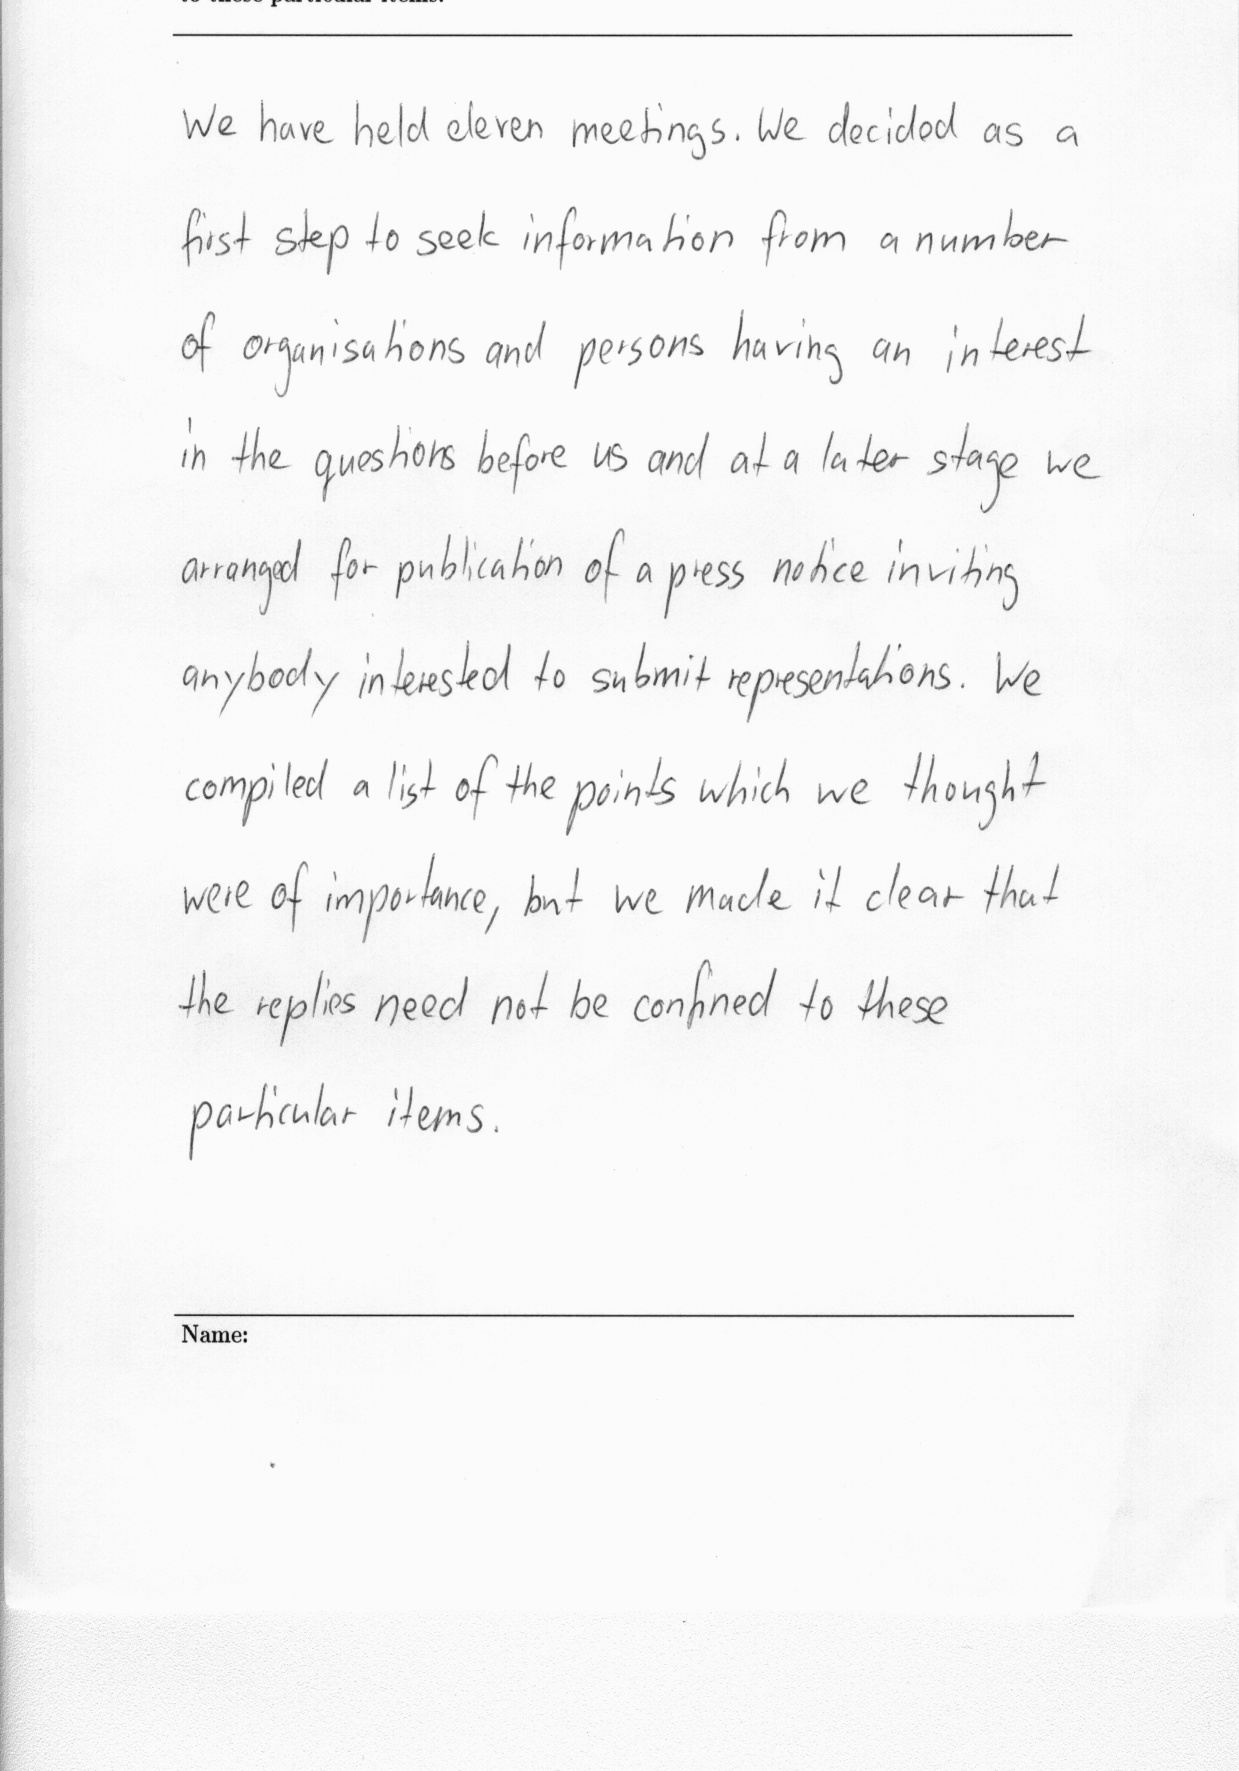 to these particular items.
We have held eleven meetings. We decided as a
first step to seek information from a number
of organisations and persons having an interest
in the questions before us and at a later stage we
arranged for publication of a press notice inviting
anybody interested to submit representations. We
compiled a list of the points which we thought
were of importance, but we made it clear that
the replies need not be confined to these
particular items.
Name: